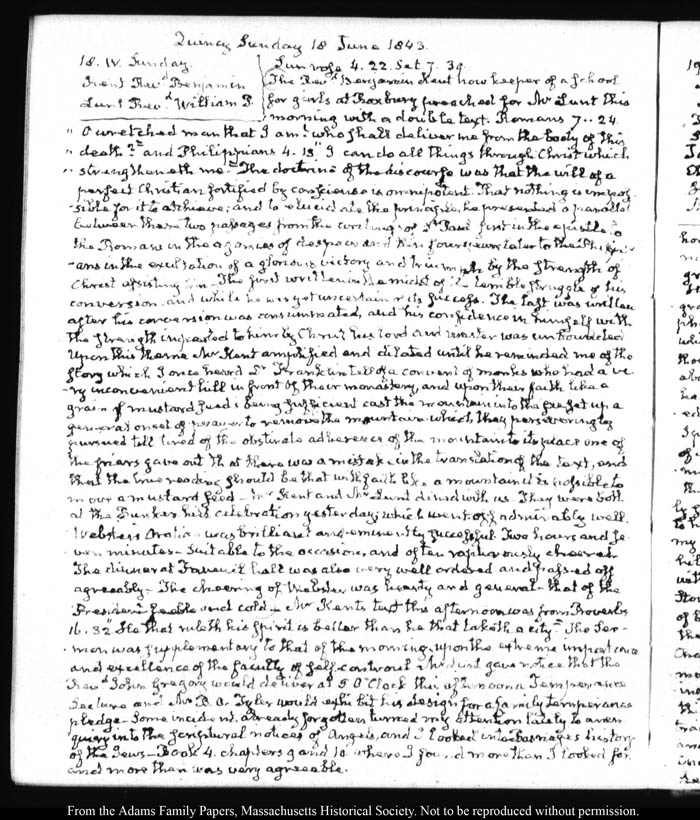 Quincy Sunday 18 June 1843.
18. IV. Sunday.
Kent Revd. Benjamin
Lunt Revd. William P.
Sun rose 4. 22. Set 7. 39.
The Revd. Benjamin Kent now keeper of a school
for girls at Roxbury preached for Mr Lunt this
morning with a double text. Romans 7. 24
" O wretched man that I am! who shall deliver me from the body of this
" death?" and Philippians 4. 13 "I can do all things through Christ which
" strengtheneth me." The doctrine of the discourse was that the will of a
perfect Christian fortified by conscience is omnipotent. That nothing is impos-
sible for it to achieve; and to elucidate the principle, he presented a parallel
between these two passages from the writings of St. Paul first in the epistle to
the Romans in the agonies of despair and then four years later to the Philippi-
-ans in the exultation of a glorious victory and triumph by the strength of
Christ The first written in the midst of the terrible struggle of his
conversion, and while he was yet uncertain of its success. The last was written
after his conversion was consummated, and his confidence in himself with
the strength imparted to him by Christ his lord and master was unbounded
Upon this theme Mr Kent amplified and dilated until he reminded me of the
story which I once heard Dr. Franklin tell of a convent of monks who had a ve-
-ry inconvenient hill in front of their monastery, and upon their faith like a
grain of mustard seed being sufficient cast the mountain into the sea set up a
general onset of prayer to remove the mountain which they perseveringly
pursued till tired of the obstinate adherence of the mountain to its place one of
the friars gave out that there was a mistake in the translation of the text, and
that the true reading should be that with faith like a mountain it is possible to
move a mustard seed – Mr Kent and Mr Lunt dined with us. They were both
at the Bunker hill celebration yesterday, which went off admirably well.
Websters Oration was brilliant and eminently successful. Two hours and se-
ven minutes – suitable to the occasion, and often rapturously cheered.
The dinner at Faneuil hall was also very well ordered and passed off
agreeably – The cheering of Webster was hearty and general – that of the
President feeble and cold – Mr Kents text this afternoon was from Proverbs
16. 32 "He that ruleth his spirit is better than he that taketh a city." The Ser-
mon was supplementary to that of the morning, upon the extreme importance
and excellence of the faculty of self controul. Mr Lunt gave notice that the
Revd. John Gregory would deliver at 5 O'Clock this afternoon a Temperance
Lecture and Mr Tyler would exhibit his design for a family temperance
pledge. Some incident already forgotten turned my attention lately to an en-
quiry into the scriptural notices of Angels, and I looked into Basnages history
of the Jews – Book 4. chapters 9 and 10. where I found more than I looked for
and more than was very agreeable.
From the Adams Family Papers, Massachusetts Historical Society. Not to be reproduced without permission.